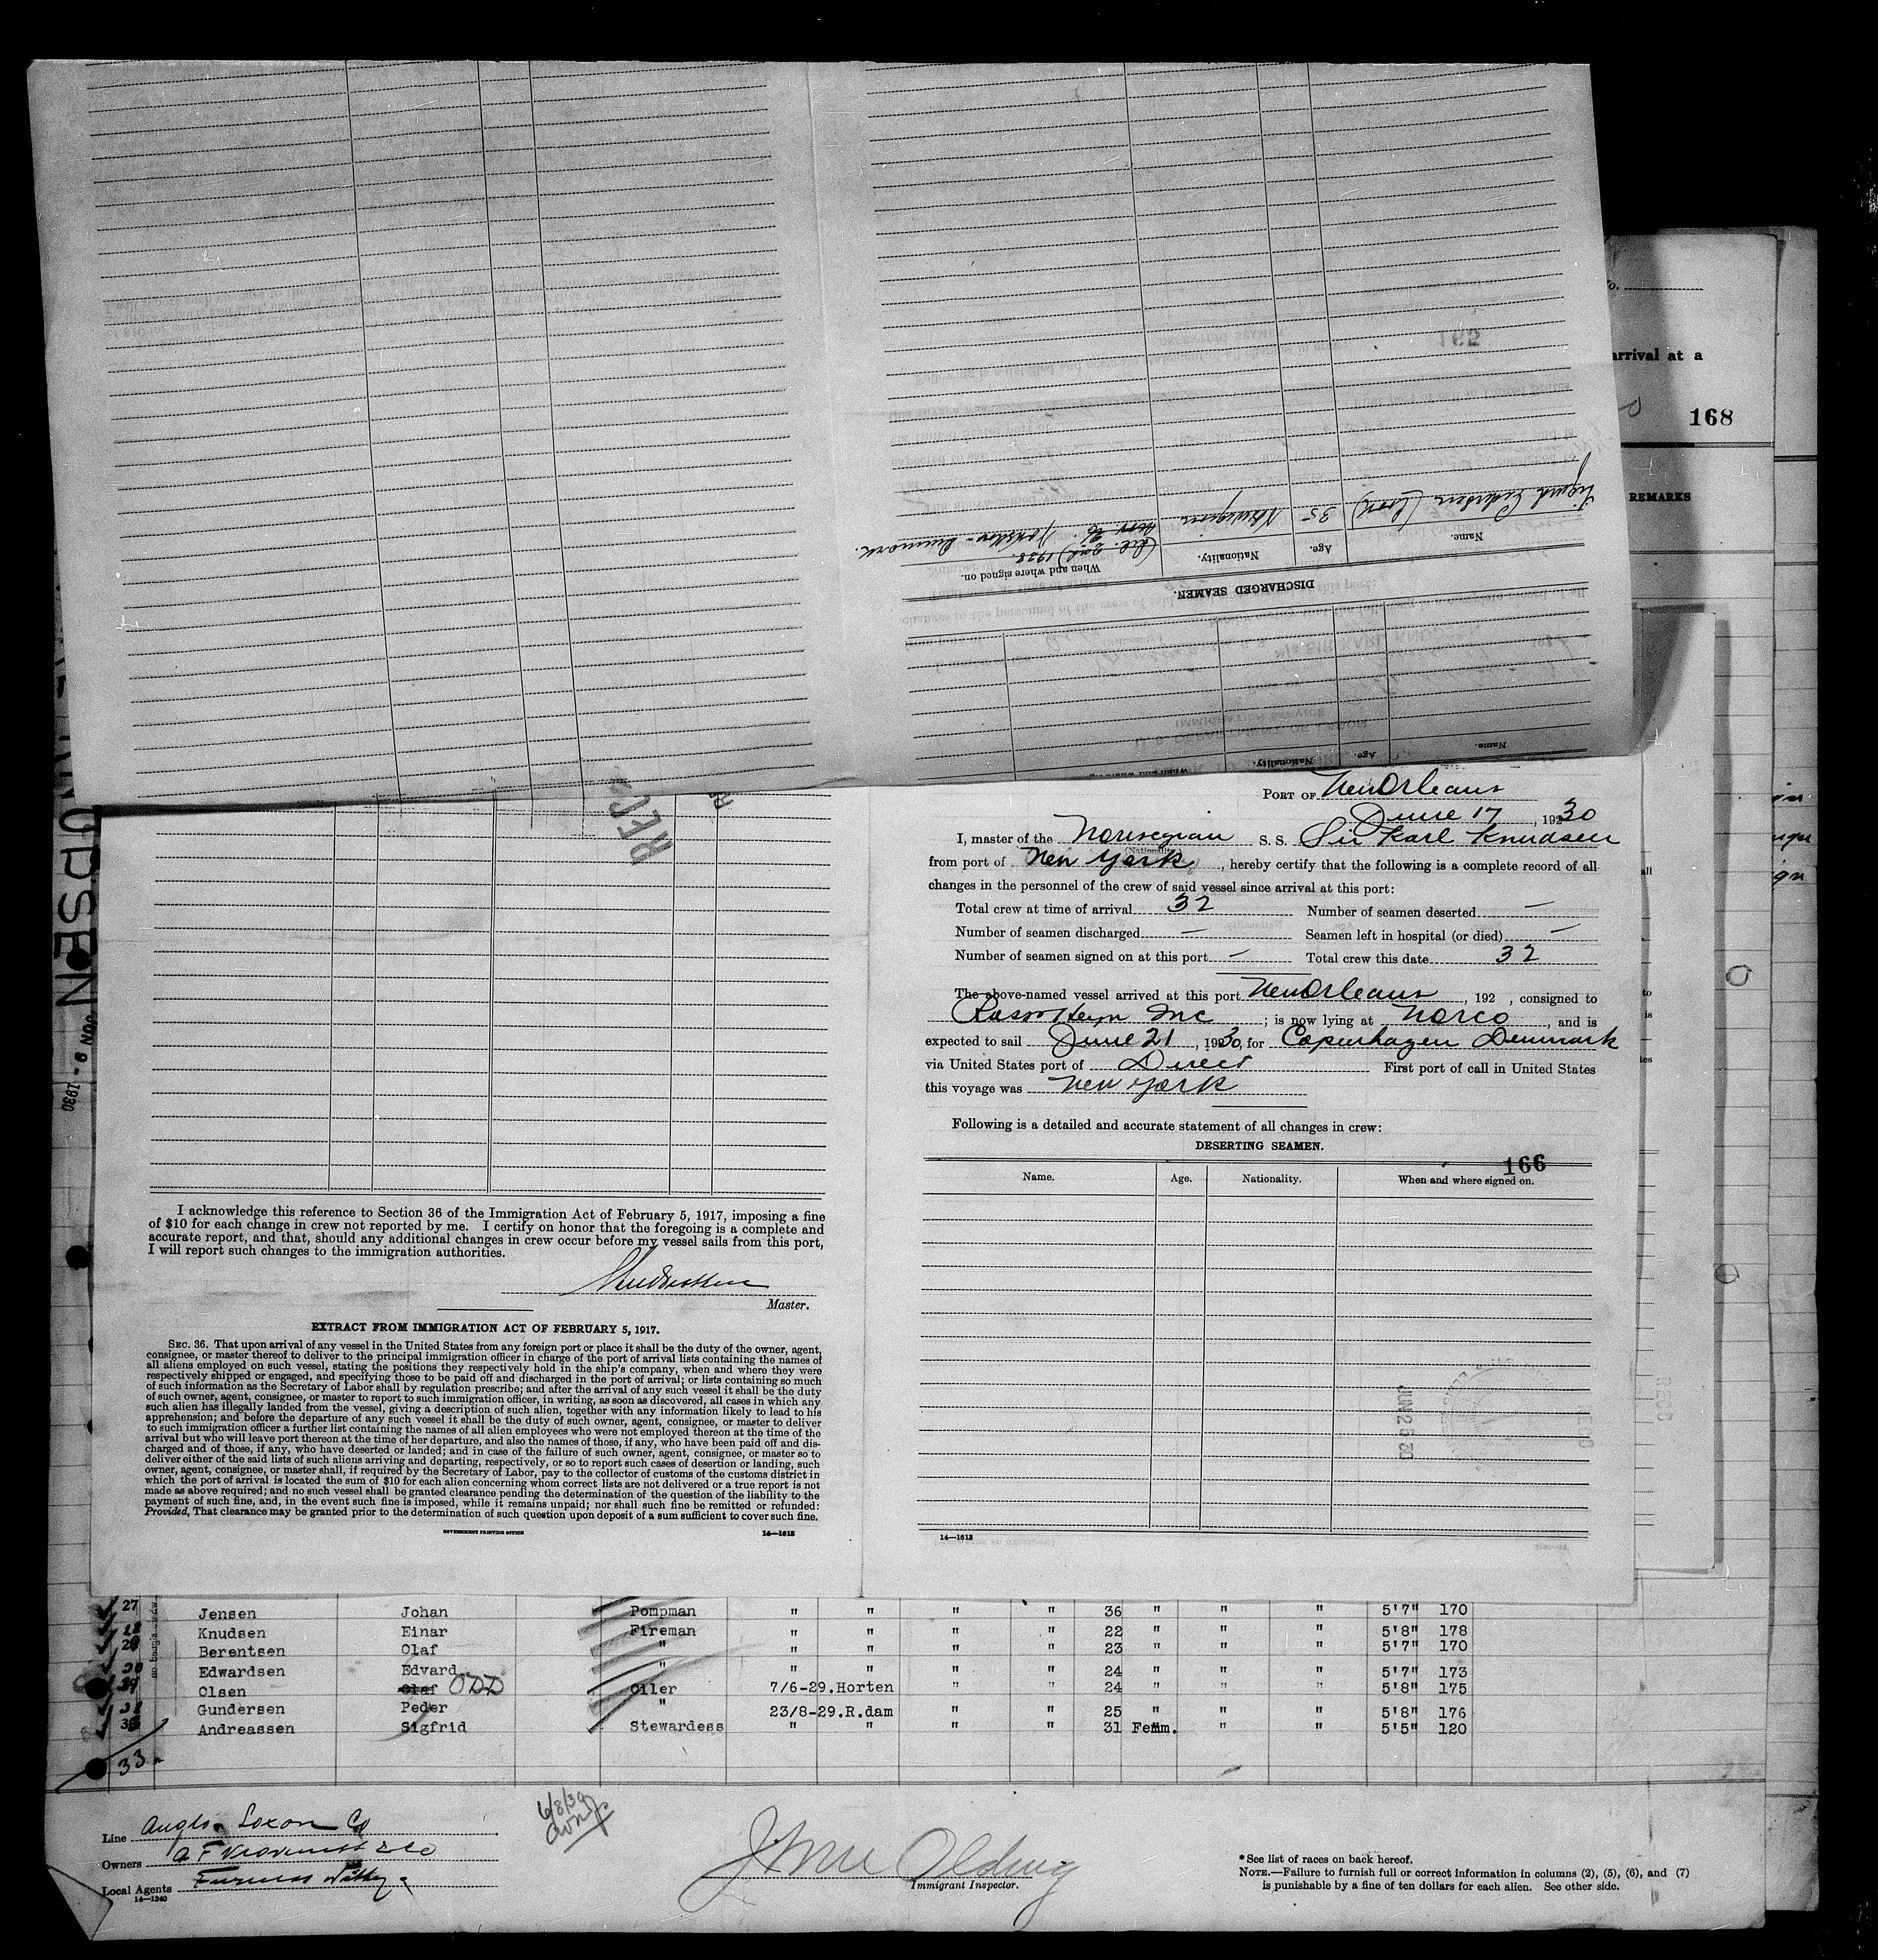 Sigurd Pedersen (Cook) 35 Norwegian
Name. Age. Nationality. When and where signed on.
DISCHARGED SEAMEN.
Name. Age. Nationality.
165
arrival at a
168
REMARKS
KNUDSEN
JUN 9 - 1930
REC'D
PORT OF New Orleans
June 17, 1930
I, master of the Norwegian S. S. Sir Karl Knudsen
(Nationality)
from port of New York, hereby certify that the following is a complete record of all
changes in the personnel of the crew of said vessel since arrival at this port:
Total crew at time of arrival 32 Number of seamen deserted —
Number of seamen discharged — Seamen left in hospital (or died) —
Number of seamen signed on at this port — Total crew this date 32
The above-named vessel arrived at this port New Orleans, 192 , consigned to
Inc ; is now lying at Norco, and is
expected to sail June 21, 1930, for Copenhagen Denmark
via United States port of Direct First port of call in United States
this voyage was New York
Following is a detailed and accurate statement of all changes in crew:
DESERTING SEAMEN.
166
Name. Age. Nationality. When and where signed on.
JUN 25 30
14—1613
I acknowledge this reference to Section 36 of the Immigration Act of February 5, 1917, imposing a fine
of $10 for each change in crew not reported by me. I certify on honor that the foregoing is a complete and
accurate report, and that, should any additional changes in crew occur before my vessel sails from this port,
I will report such changes to the immigration authorities.
Master.
EXTRACT FROM IMMIGRATION ACT OF FEBRUARY 5, 1917.
SEC. 36. That upon arrival of any vessel in the United States from any foreign port or place it shall be the duty of the owner, agent,
consignee, or master thereof to deliver to the principal immigration officer in charge of the port of arrival lists containing the names of
all aliens employed on such vessel, stating the positions they respectively hold in the ship's company, when and where they were
respectively shipped or engaged, and specifying those to be paid off and discharged in the port of arrival; or lists containing so much
of such information as the Secretary of Labor shall by regulation prescribe; and after the arrival of any such vessel it shall be the duty
of such owner, agent, consignee, or master to report to such immigration officer, in writing, as soon as discovered, all cases in which any
such alien has illegally landed from the vessel, giving a description of such alien, together with any information likely to lead to his
apprehension; and before the departure of any such vessel it shall be the duty of such owner, agent, consignee, or master to deliver
to such immigration officer a further list containing the names of all alien employees who were not employed thereon at the time of the
arrival but who will leave port thereon at the time of her departure, and also the names of those, if any, who have been paid off and dis-
charged and of those, if any, who have deserted or landed; and in case of the failure of such owner, agent, consignee, or master so to
deliver either of the said lists of such aliens arriving and departing, respectively, or so to report such cases of desertion or landing, such
owner, agent, consignee, or master shall, if required by the Secretary of Labor, pay to the collector of customs of the customs district in
which the port of arrival is located the sum of $10 for each alien concerning whom correct lists are not delivered or a true report is not
made as above required; and no such vessel shall be granted clearance pending the determination of the question of the liability to the
payment of such fine, and, in the event such fine is imposed, while it remains unpaid; nor shall such fine be remitted or refunded:
Provided, That clearance may be granted prior to the determination of such question upon deposit of a sum sufficient to cover such fine.
GOVERNMENT PRINTING OFFICE 14—1613
27 Jensen Johan Pompman " " " " 36 " " " 5'7" 170
28 Knudsen Einar Fireman " " " " 22 " " " 5'8" 178
29 Berentsen Olaf " " " " " 23 " " " 5'7" 170
30 Edwardsen Edvard " " " " " 24 " " " 5'7" 173
31 Olsen Olaf ODD Oiler 7/6-29.Horten " " 24 " " " 5'8" 175
32 Gundersen Peder " 23/8-29.R.dam " " 25 " " " 5'8" 176
33 Andreassen Sigfrid Stewardess " " " " 31 Femm. " " 5'5" 120
33
6/8/30
Line Anglo-Saxon Co
Owners
Local Agents Furness Withy
14—1240
Immigrant Inspector.
*See list of races on back hereof.
NOTE.—Failure to furnish full or correct information in columns (2), (5), (6), and (7)
is punishable by a fine of ten dollars for each alien. See other side.